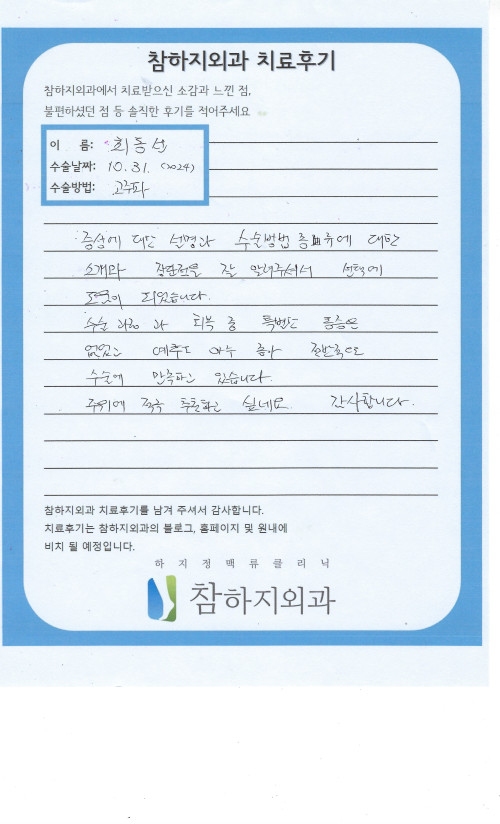 참하지외과 치료후기
참하지외과에서 치료받으신 소감과 느낀 점,
불편하셨던 점 등 솔직한 후기를 적어주세요
이 름: 최동선
수술날짜: 10. 31. (2024)
수술방법: 고주파
증상에 대한 설명과 수술방법 종류에 대한
소개와 장단점을 잘 알려주셔서 선택에
도움이 되었습니다.
수술 과정과 회복 중 특별한 통증은
없었고 예후도 아주 좋아 전반적으로
수술에 만족하고 있습니다.
주위에 적극 추천하고 싶네요 감사합니다.
참하지외과 치료후기를 남겨 주셔서 감사합니다.
치료후기는 참하지외과의 블로그, 홈페이지 및 원내에
비치 될 예정입니다.
하지정맥류클리닉
참하지외과